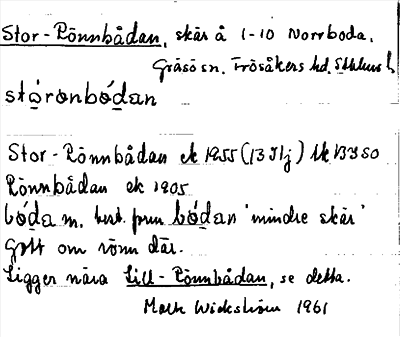 Stor-Rönnbådan, skär å 1-10 Norrboda.
Gräsö sn. Frösåkers hd. Sthlms l.
stórönbódan
Stor-Rönnbådan ek 1955 (13I1j)
Rönnbådan ek 1905
bóda m. best. form bódan 'mindre skär'
Gott om rönn där.
Ligger nära Lill-Rönnbådan, se detta.
Mats Wickström 1961